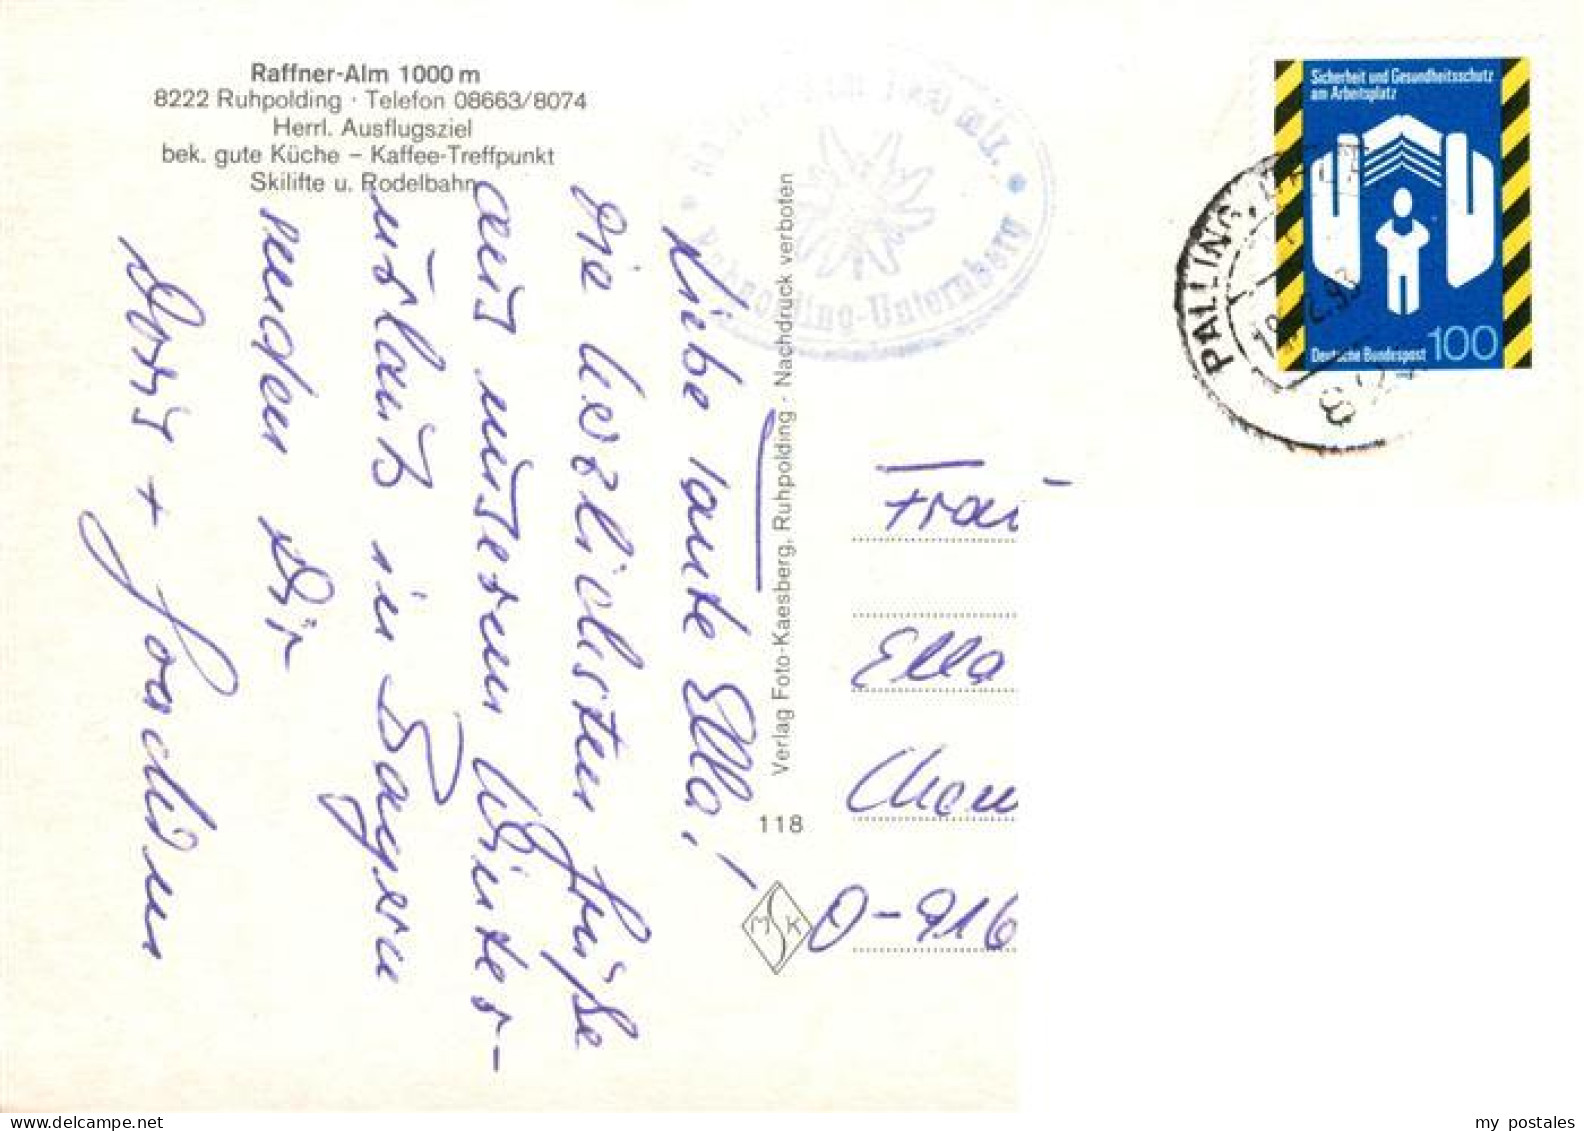 Raffner-Alm 1000 m
8222 Ruhpolding · Telefon 08663/8074
Herrl. Ausflugsziel
bek. gute Küche – Kaffee-Treffpunkt
Skilifte u. Rodelbahn
Liebe Tante Ella!
Die herzlichsten Grüße
aus unserem Winter-
urlaub in Bayern
senden Dir
Doris + Joachim
Verlag Foto-Kaesberg, Ruhpolding · Nachdruck verboten
118
Ruhpolding-Unternberg
Sicherheit und Gesundheitsschutz
am Arbeitsplatz
Deutsche Bundespost 100
PALLING
Frau
Ella
O-916
my postales